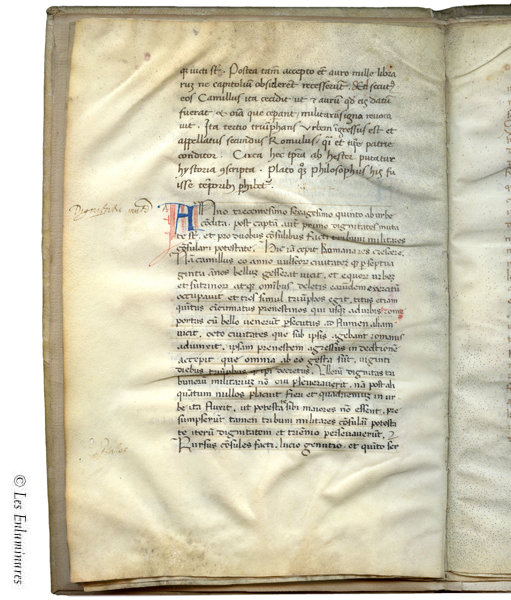 qͥ victi sт̃. Postea tam̃ accepto et̃ auro mille libra
ruȝ ne capitoliũ obsiderent recesserunt. Et secutꝰ
eos Camillus ita cecidit ut & aurũ qd̃ eis datũ
fuerat & oĩa que ceperant militaria signa revoca
vit. Ita tertio triũphans Urbem ĩgressus est et
appellatus secundus Romulus, qͥ et ip̃e patrie
conditor. Circa hec tp̃ra ab hester putatur
hystoria ꝯscripta. Plato qͦȝ philosophus his fu
isse temporibꝰ
Dignitatũ
ANno trecentesimo sexagesimo quinto ab urbe
cõdita. post captã aut̃ primo dignitates muta
te st̃, et pro duobus cõsulibus facti tribuni militares
cõsulari potestate. Hic iã cepit Romana res crescere.
Nã camillus eo anno vulscorꝝ civitateȝ q̃ ꝑ septua
ginta ãnos bellũ gesserat vicit, et equorꝝ urbeȝ
et sutrinorꝝ atqꝫ omnibus deletis earũdem exercitũ
occupavit et tres simul triũphos egit. titus etiam
quĩtius cicinnatus prenestinos qui usqꝫ ad urbis rome
portas cũ bello venerũt ꝑsecutus ad flumen aliam
vicit, octo civitates que sub ipsis agebant romanis
adiunxit, ipsam prenestem agressus in deditionẽ
accepit que omnia ab eo gesta sũt, viginti
diebus triũphus qͥ ip̃i decretus. Verũ dignitas tri
bunorũ militariũ nõ diu ꝑseveravit, nã post ali
quãtum nullos placuit fieri et quadrieniũ in ur
be ita fluxit, ut potestates ibi maiores nõ essent, pre
sumpserũt tamen tribuni militares cõsulari potesta
te iterũ dignitatem et triẽnio perseverarunt,
Rursus cõsules facti, lucio genutio, et quĩto ser
© Les Enluminures